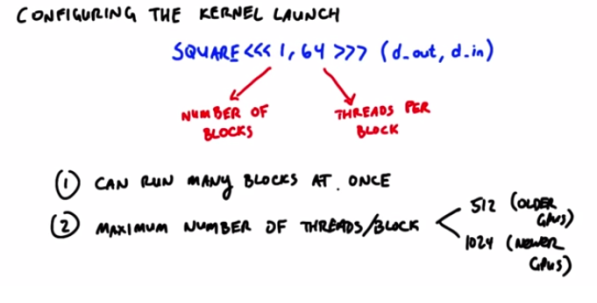 CONFIGURING THE KERNEL LAUNCH
SQUARE<<< 1, 64 >>> (d_out, d_in)
NUMBER OF
BLOCKS
THREADS PER
BLOCK
① CAN RUN MANY BLOCKS AT. ONCE
② MAXIMUM NUMBER OF THREADS/BLOCK
512 (OLDER
GPUS)
1024 (NEWER
GPUS)